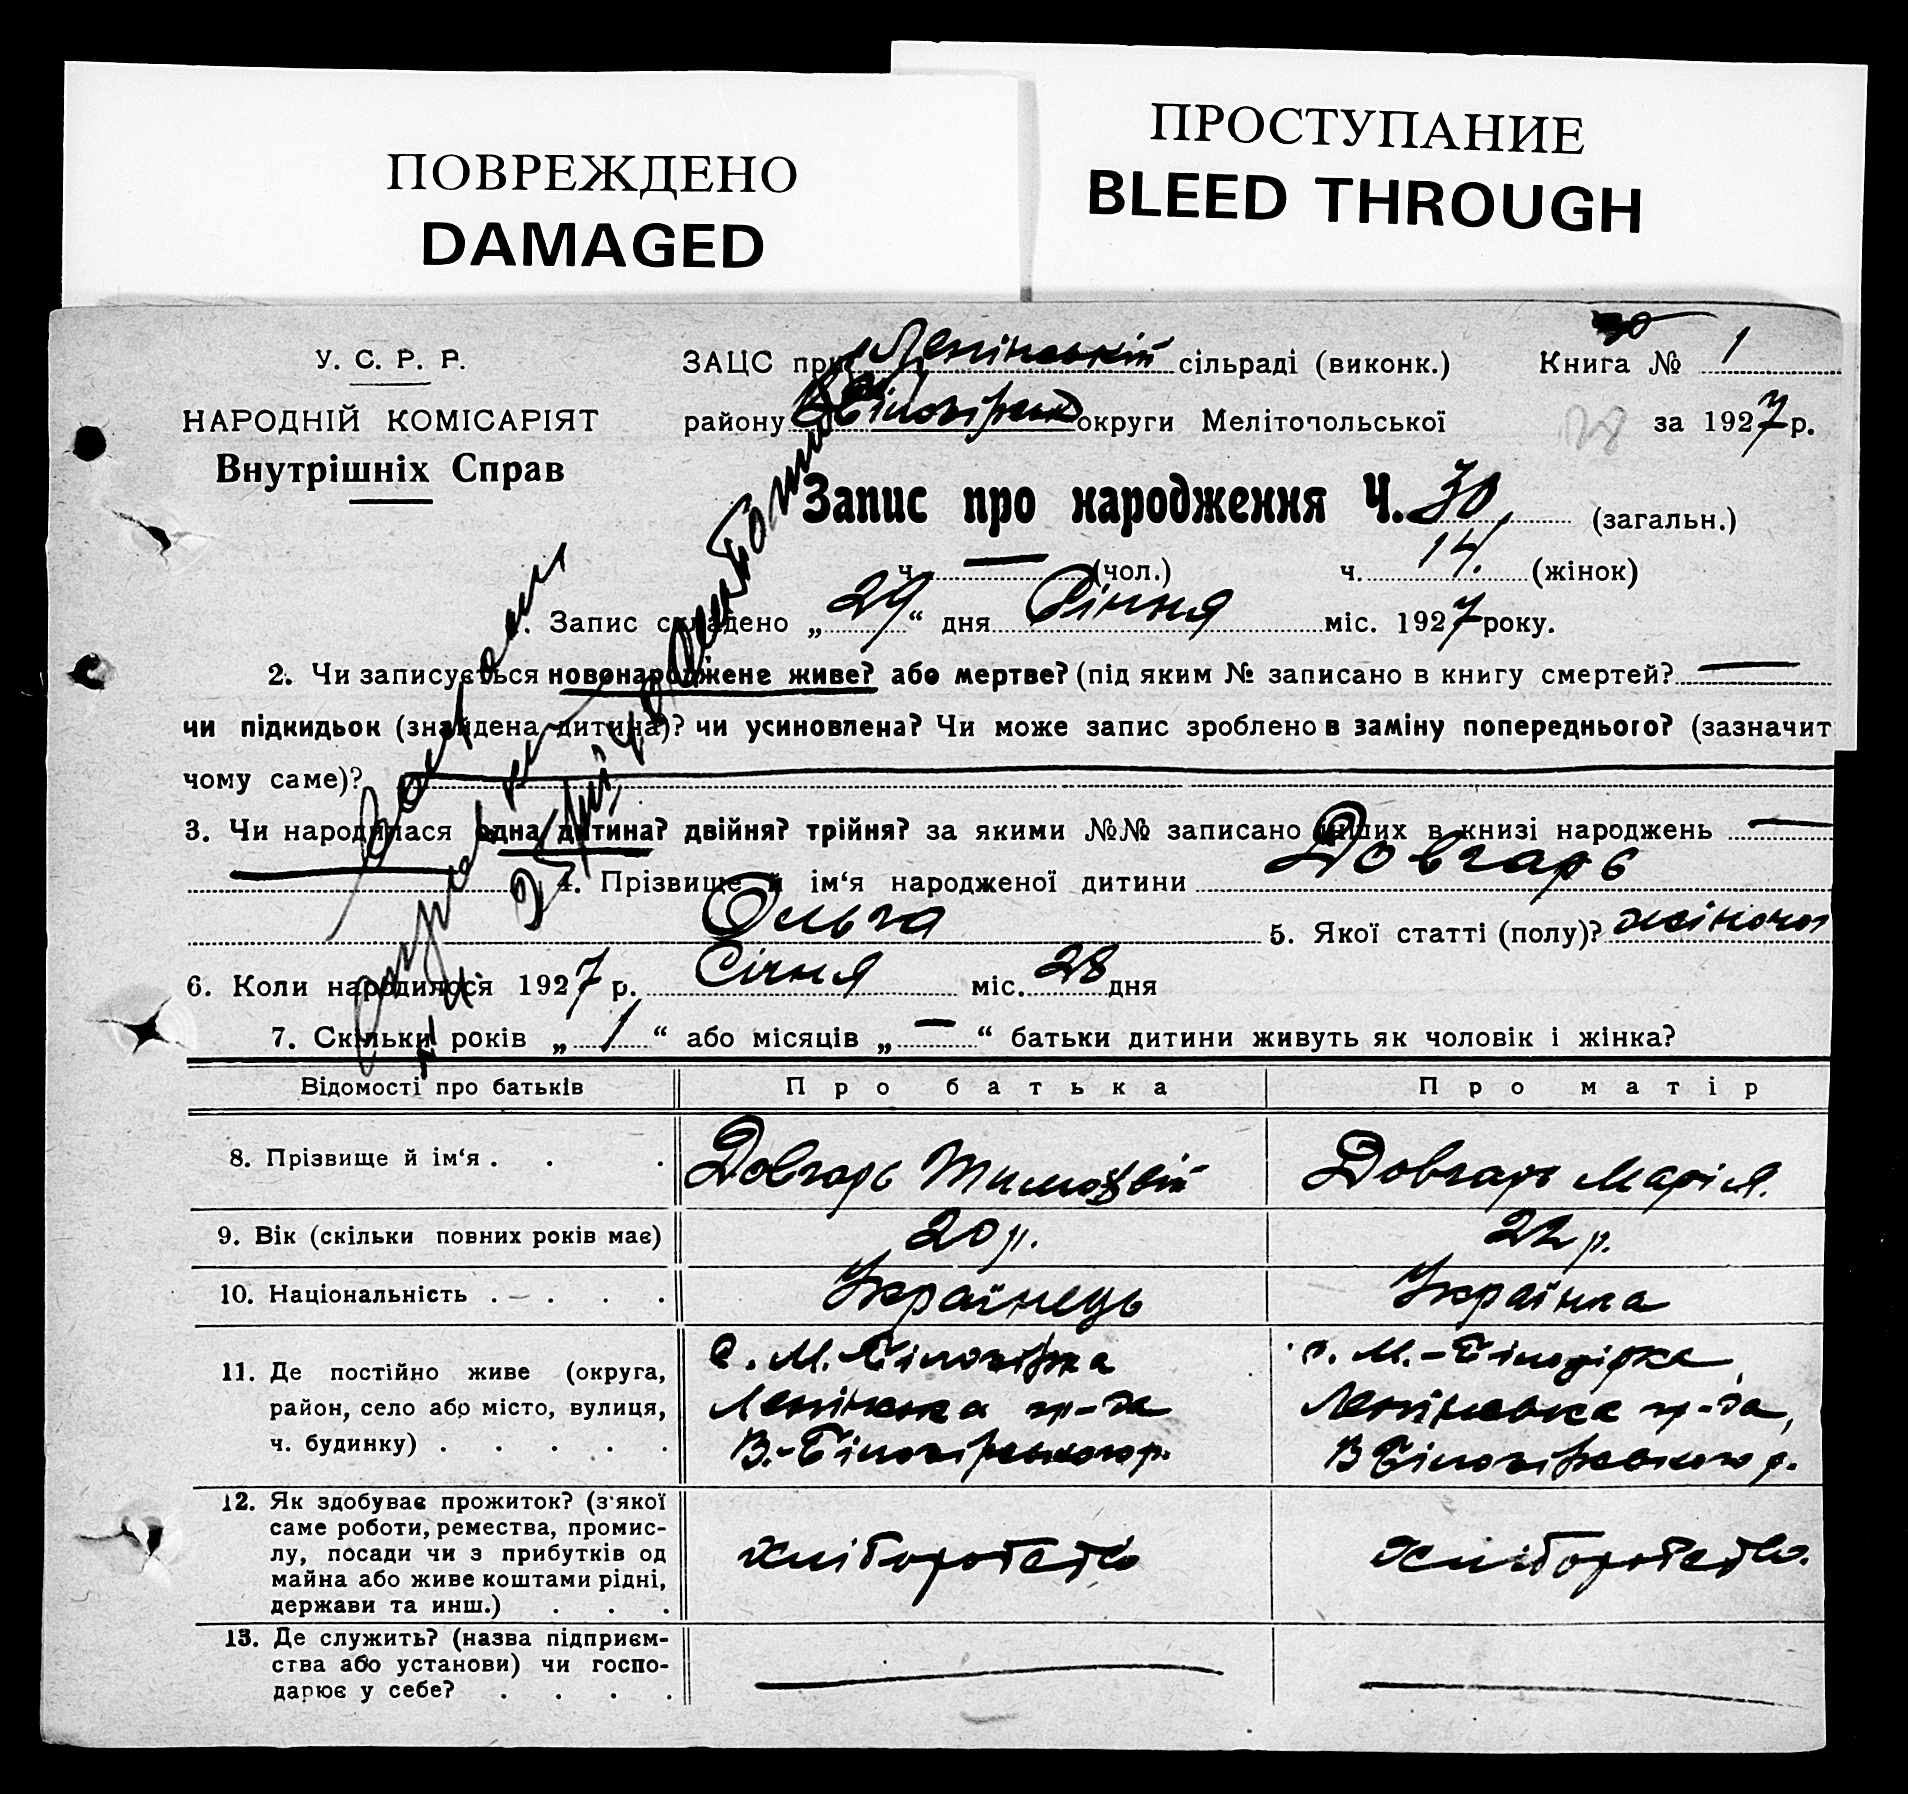 ПОВРЕЖДЕНО
DAMAGED
ПРОСТУПАНИЕ
BLEED THROUGH
У. С. Р. Р.
НАРОДНІЙ КОМІСАРІЯТ
Внутрішніх Справ
ЗАЦС при Ленінській сільраді (виконк.) Книга № 1
району округи Мелітопольської за 1927 р.
28
Запис про народження Ч. 30 (загальн.)
ч. — (чол.) ч. 14. (жінок)
1. Запис складено „29“ дня Січня міс. 1927 року.
2. Чи записується новонароджене живе? або мертве? (під яким № записано в книгу смертей? —
чи підкидьок (знайдена дитина)? чи усиновлена? Чи може запис зроблено в заміну попереднього? (зазначит
чому саме)?
3. Чи народилася одна дитина? двійня? трійня? за якими №№ записано інших в книзі народжень —
4. Прізвище й ім‘я народженої дитини Довгарь
Ольга 5. Якої статті (полу)? жіночоі
6. Коли народилося 1927 р. Січня міс. 28 дня
7. Скільки років „1“ або місяців „—“ батьки дитини живуть як чоловік і жінка?
Відомості про батьків Про батька Про матір
8. Прізвище й ім‘я . . . Довгарь Тимофій Довгарь Марія.
9. Вік (скільки повних років має) 20 р. 22 р.
10. Національність . — . . . Українець Українка
11. Де постійно живе (округа, с. М. Білогірка с. М.-Білогірка,
район, село або місто, вулиця, Ленінська р-да Ленінська р-да,
ч. будинку) . . . . . В.-Білогірського р. В Білогірського р.
12. Як здобуває прожиток? (з‘якої
саме роботи, ремества, промис-
лу, посади чи з прибутків од хліборобство хліборобство.
майна або живе коштами рідні,
держави та инш.) . . .
13. Де служить? (назва підприєм-
ства або установи) чи госпо-
дарює у себе? . . . .